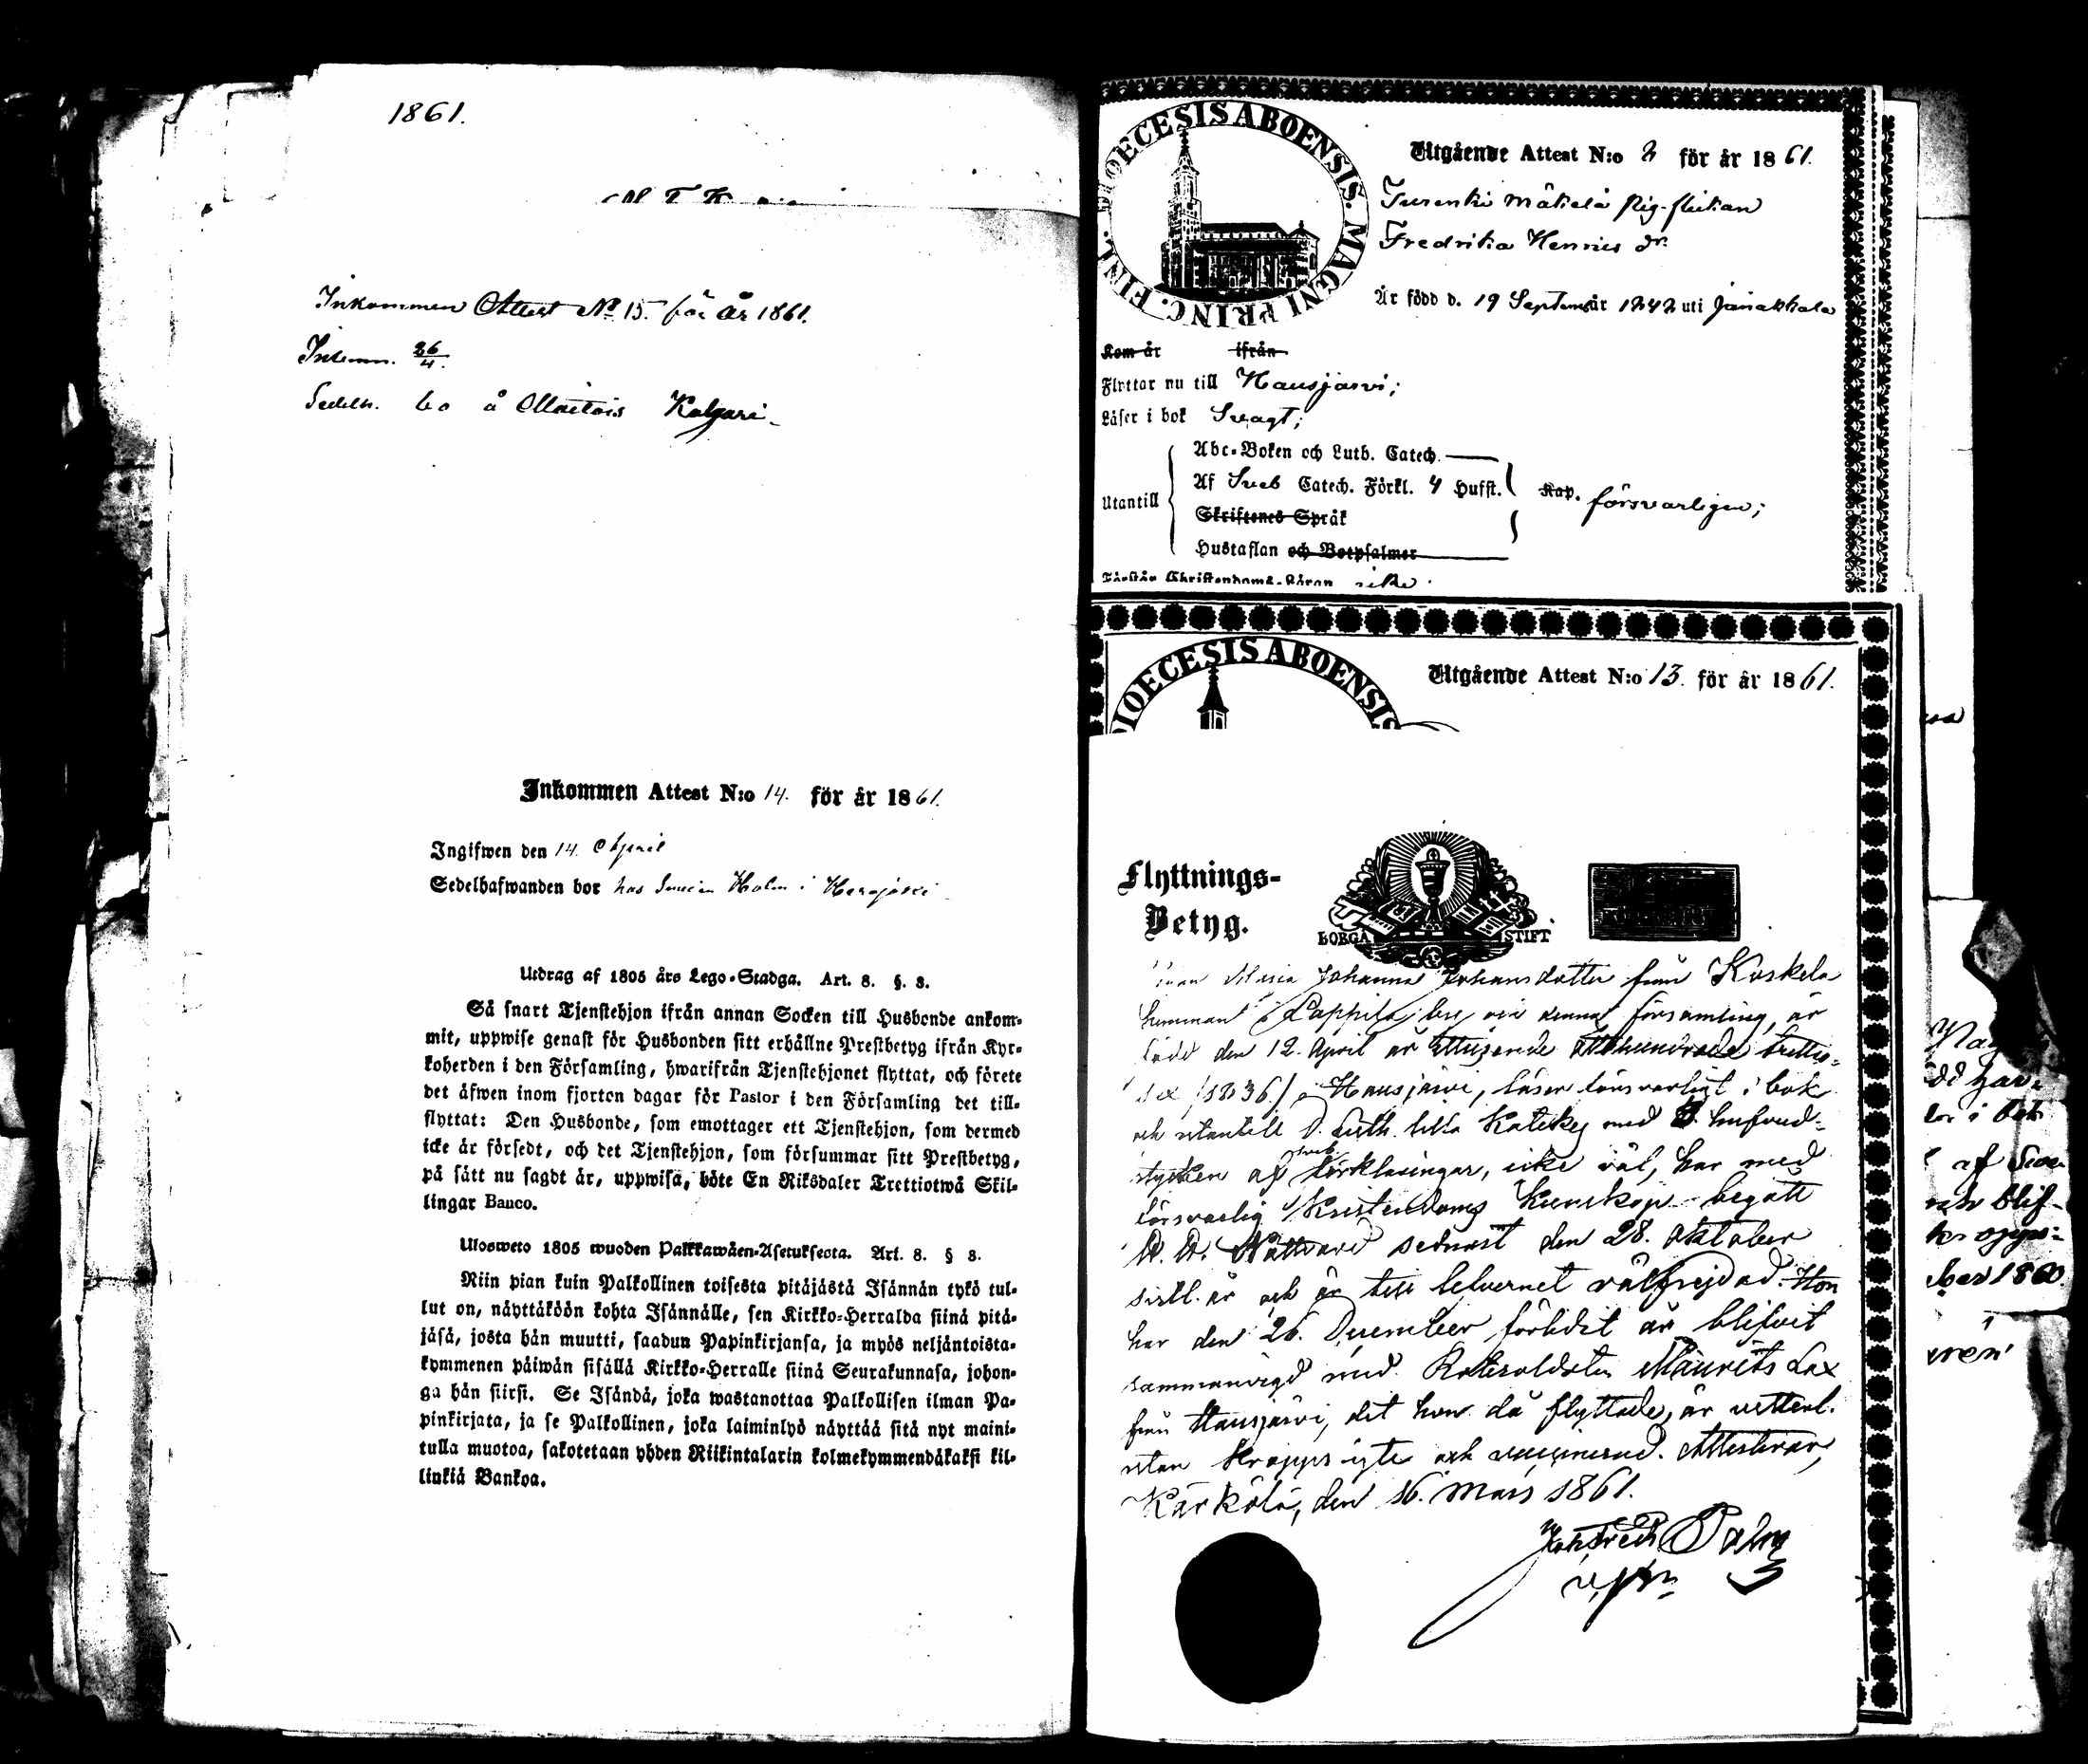 1861.
Inkommen Attest No 15. för år 1861.
26/4.
bo å Kalgari.
Inkommen Attest N:o 14. för år 1861.
Ingifwen den 14. April
Sedelhafwanden bor hos Holm i
Utdrag af 1805 års Lego-Stadga. Art. 8. §. 8.
Så snart Tjenstehjon ifrån annan Socken till Husbonde ankom-
mit, uppwise genast för Husbonden sitt erhållne Prestbetyg ifrån Kyr-
koherden i den Församling, hwarifrån Tjenstehjonet flyttat, och förete
det äfwen inom fjorton dagar för Pastor i den Församling det till-
flyttat: Den Husbonde, som emottager ett Tjenstehjon, som dermed
icke är försedt, och det Tjenstehjon, som försummar sitt Prestbetyg,
på sätt nu sagdt är, uppwisa, böte En Riksdaler Trettiotwå Skil-
lingar Banco.
Ulosweto 1805 wuoden Palkkawäen-Asetuksesta. Art. 8. § 8.
Niin pian kuin Palkollinen toisesta pitäjästä Isännän tykö tul-
lut on, näyttäköön kohta Isännälle, sen Kirkko-Herralda siinä pitä-
jäsä, josta hän muutti, saadun Papinkirjansa, ja myös neljäntoista-
kymmenen päiwän sisällä Kirkko-Herralle siinä Seurakunnasa, johon-
ga hän siirsi. Se Isändä, joka wastanottaa Palkollisen ilman Pa-
pinkirjata, ja se Palkollinen, joka laiminlyö näyttää sitä nyt maini-
tulla muotoa, sakotetaan yhden Riikintalarin kolmekymmendäkaksi kil-
linkiä Bankoa.
DIOECESIS ABOENSIS. MAGNI PRINC. FINL.
Utgående Attest N:o 2 för år 1861.
Turenki Mäkelä Pig-flickan
Fredrika Henrics dr.
Är född d. 19 September år 1842 uti Janakkala
Kom år ifrån
Flyttar nu till Hausjärvi;
Läser i bok Svagt;
Utantill
Abc-Boken och Luth. Catech.
Af Sveb Catech. Förkl. 4 Hufst. Kap. försvarligen;
Skriftenes Språk
Hustaflan och Botpsalmer
Förstår Christendoms-Läran icke
DIOECESIS ABOENSIS
Utgående Attest N:o 13. för år 1861.
Flyttnings-
Betyg.
BORGÅ STIFT
Maria Johanna Johansdotter från Koskela
hemman i Lappila by uti denna församling, är
född den 12. April år Ettusende Åttahundrade trettio-
sex (1836) i Hausjärvi, läser försvarligt i bok
och utantill D. Luth. lilla Katekes med 3. hufvud-
stycken af Sveb. förklaringar, icke väl, har med
försvarlig Kristendoms kunskap begått
H. H. Nattvard sednast den 28. Oktober
sistl. år och är till lefvernet välfrejdad. Hon
har den 26. December förlidit år blifvit
sammanvigd med Roteksoldaten Maurits Lax
från Hausjärvi, dit hon då flyttade, är vetterl.
utan kroppslyte och vaccinerad. Attesterar,
Kärkölä, den 16. Mars 1861.
Palm